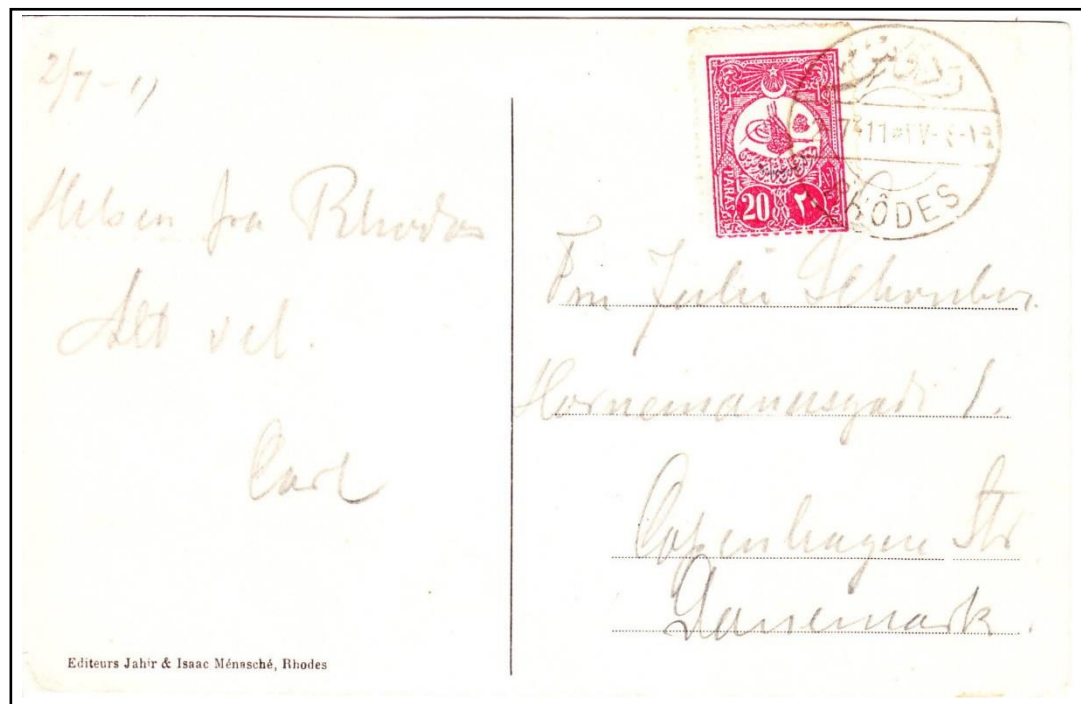 2/7-11
Hilsen fra Rhodos
Alt vel.
Carl
Editeurs Jahir & Isaac Ménasché, Rhodes
PARAS
20 ٢٠
ردوس
7 11 ١٧-٤-١٩
RHÔDES
Fru Julie
Hornemannsgade 1.
Copenhagen Str
Danemark.